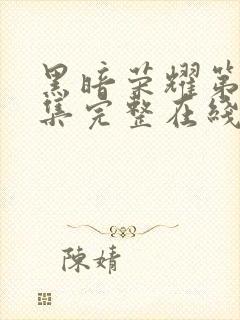 黑暗荣耀第
集完整在线
陳婧